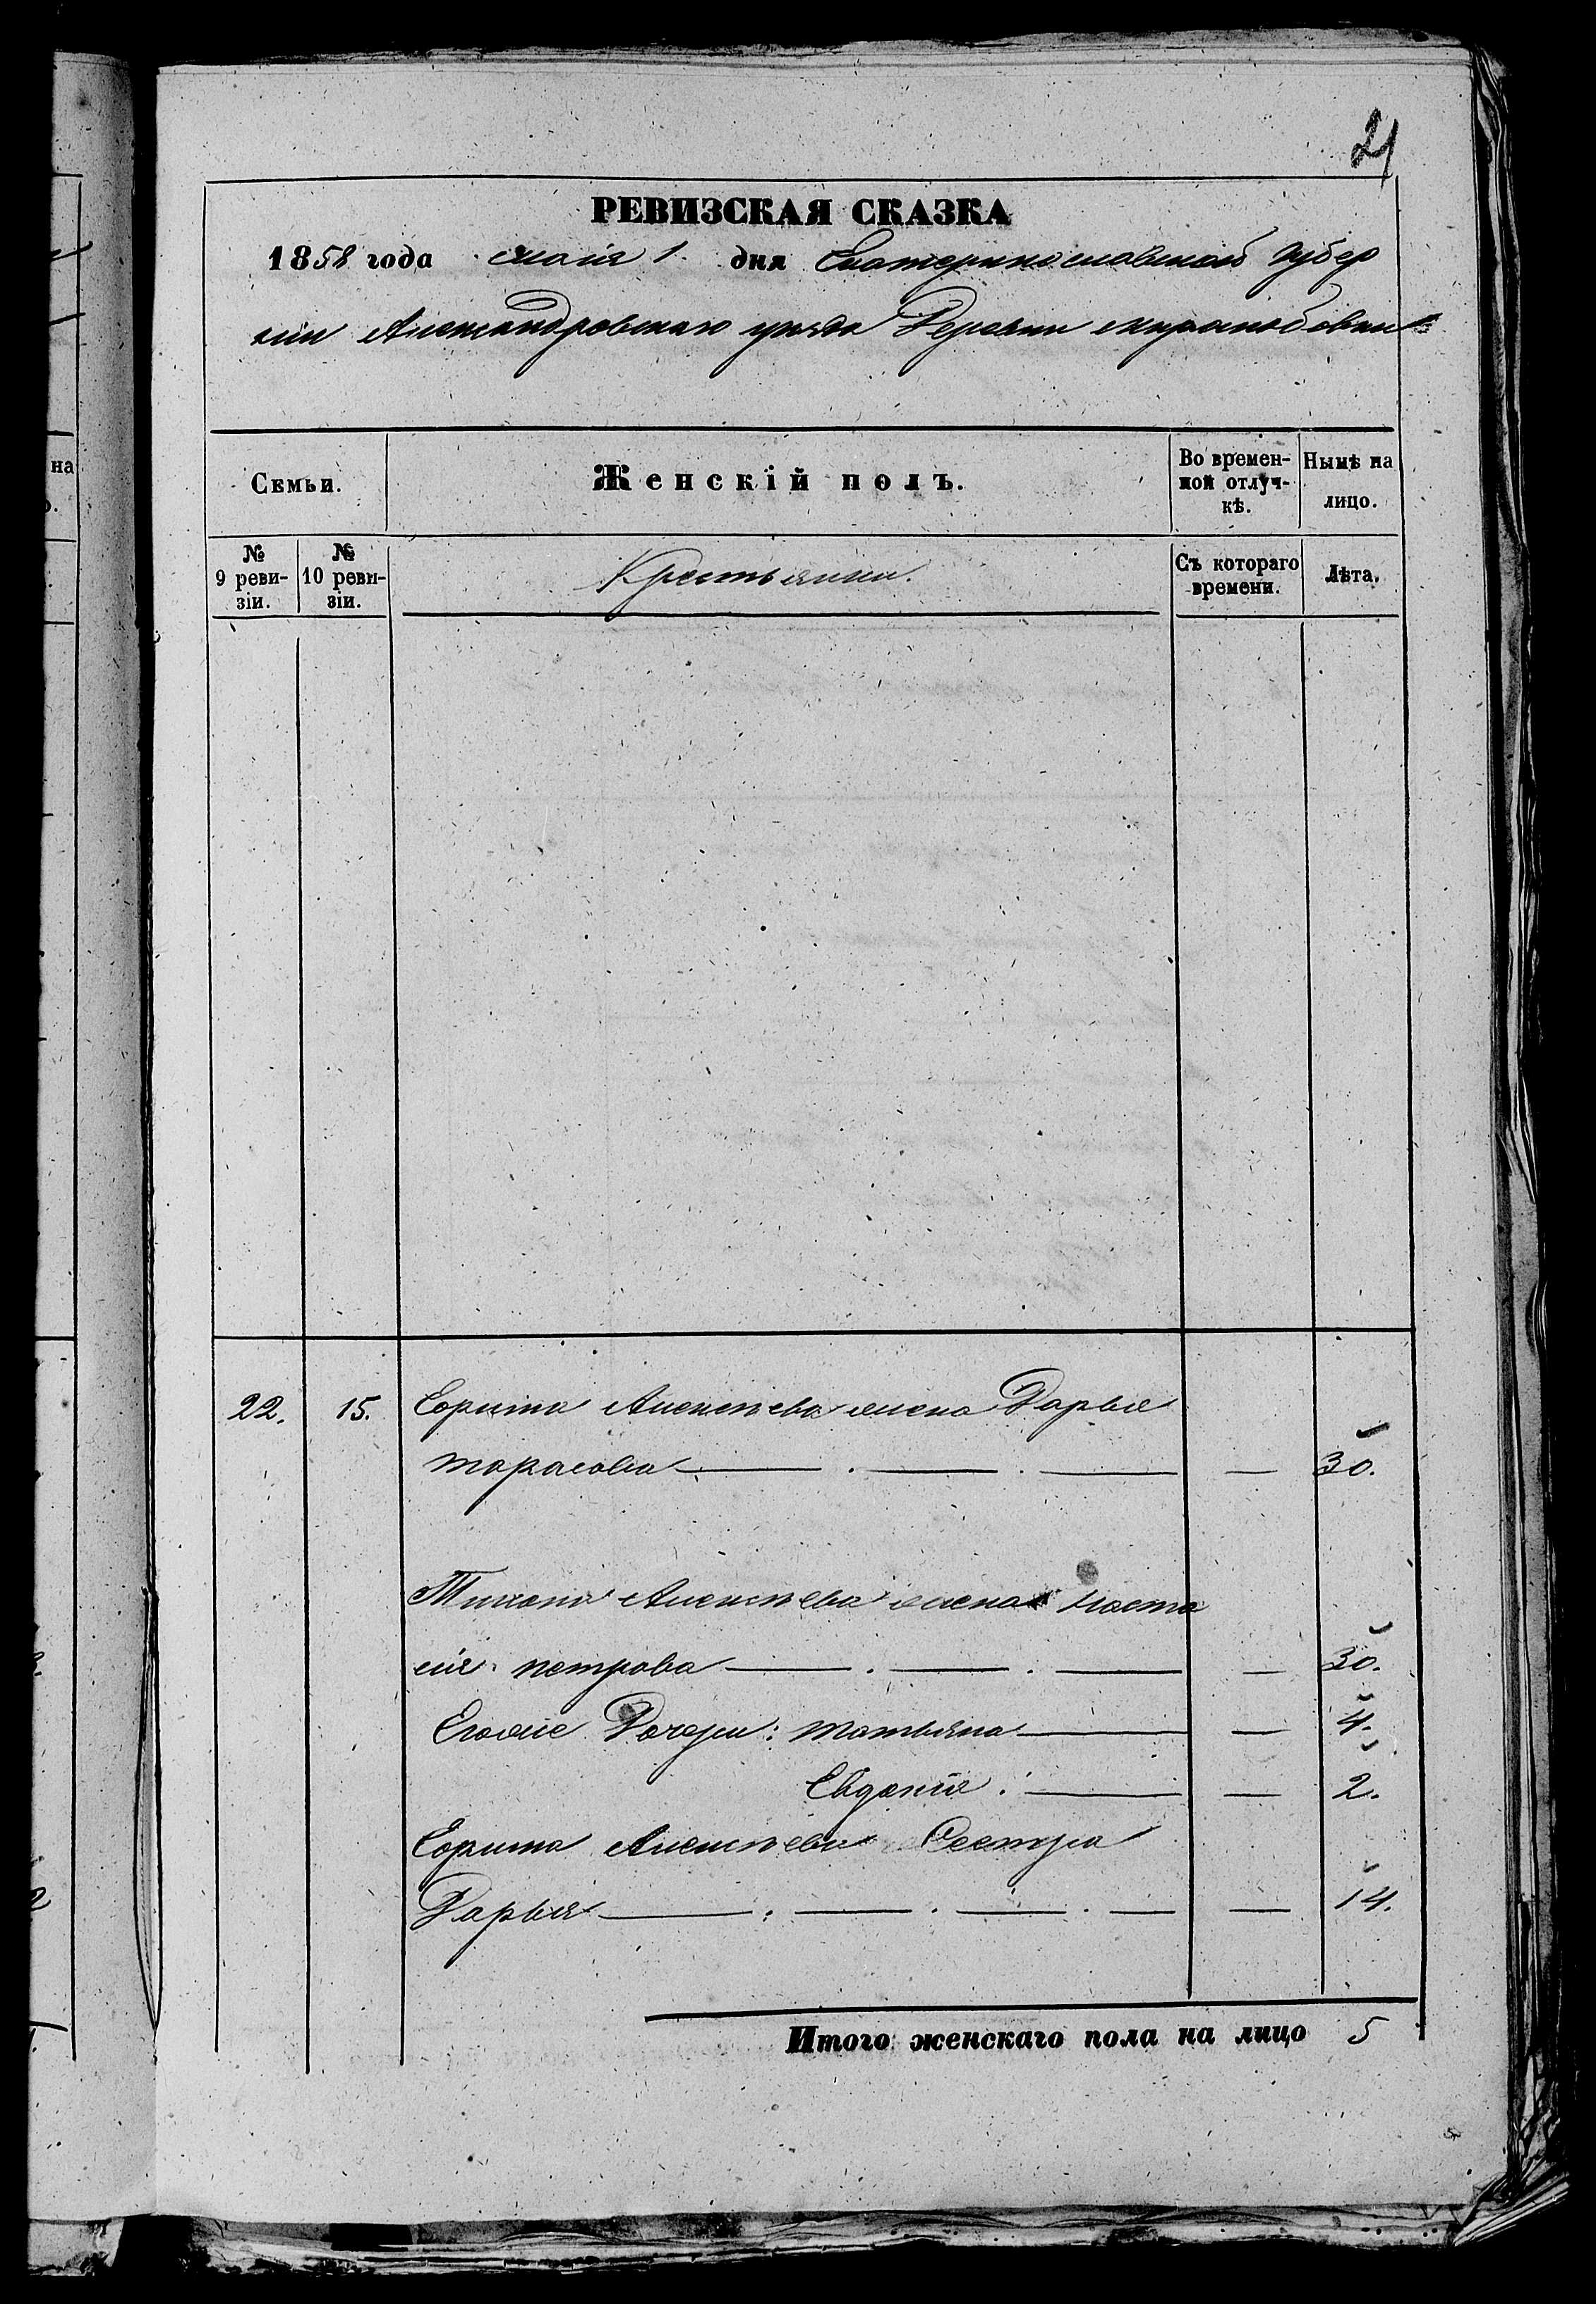 21
РЕВИЗСКАЯ СКАЗКА
1858 года маія 1. дня Екатеринославской губер
ніи Александровскаго уезда Деревни
на
Семьи.
Женскій полъ.
Во времен-
ной отлуч-
кѣ.
Нынѣ на
лицо.
№
9 реви-
зіи.
№
10 реви-
зіи.
Крестьянки.
Съ котораго
времени.
Лѣта.
22. 15. Алексѣева жена Дарья
тарасова — — 30.
Тихона Алексѣева жена Наста
сія петрова — — 30.
Еговые Дочери: татьяна — — 4.
Евдокія. — — 2.
Алексѣева Сестра
Дарья — — 14.
Итого женскаго пола на лицо 5